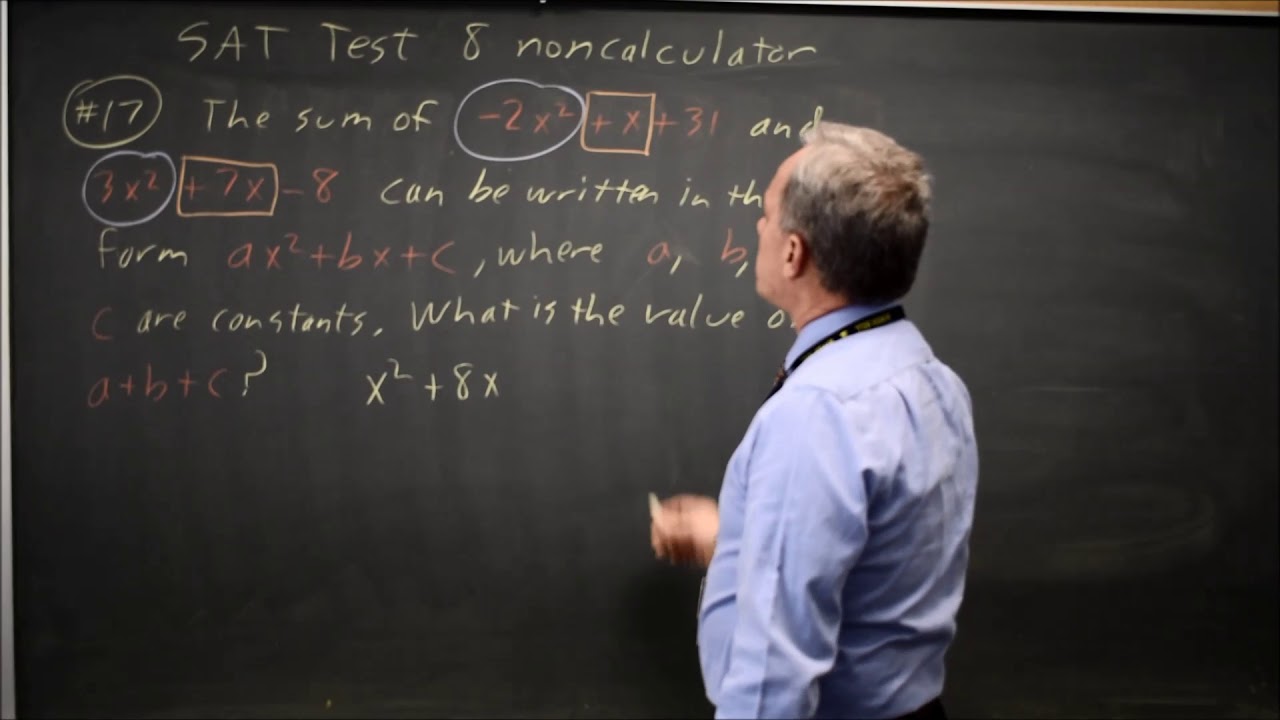 SAT Test 8 noncalculator
#17 The sum of -2x² + x + 31 and
3x² + 7x - 8 can be written in
form ax² + bx + c, where a, b,
c are constants. What is the value
a + b + c? x² + 8x